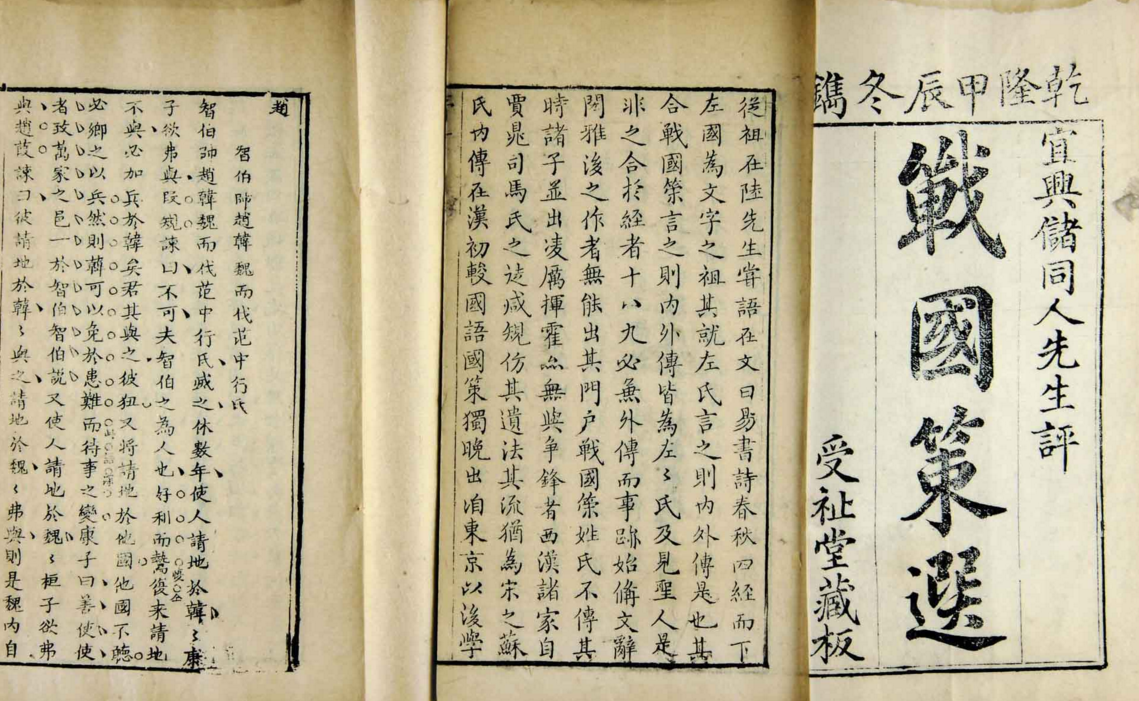 乾隆甲辰冬鐫
宜興儲同人先生評
戰國策選
受祉堂藏板
從祖在陸先生嘗語在文曰易書詩春秋四經而下
左國為文字之祖其就左氏言之則內外傳是也其
合戰國策言之則內外傳皆為左〻氏及見聖人是
非之合於經者十八九必兼外傳而事跡始備文辭
閎雅後之作者無能出其門戶戰國策姓氏不傳其
時諸子並出凌厲揮霍而無與争鋒者西漢諸家自
賈鼂司馬氏之徒咸規仿其遺法其流猶為宋之蘇
氏內傳在漢初較國語國策獨晚出洎東京以後學
趙
智伯帥趙韓魏而伐范中行氏
智伯帥趙韓魏而伐范中行氏滅之休數年使人請地於韓〻康
子欲弗與段規諫曰不可夫智伯之為人也好利而鷙復来請地
不與必加兵於韓矣君其與之彼狃又將請地於他國他國不聽
必鄉之以兵然則韓可以免於患難而待事之變康子曰善使使
者致萬家之邑一於智伯智伯說又使人請地於魏〻桓子欲弗
與趙葭諫曰彼請地於韓〻與之請地於魏〻弗與則是魏內自